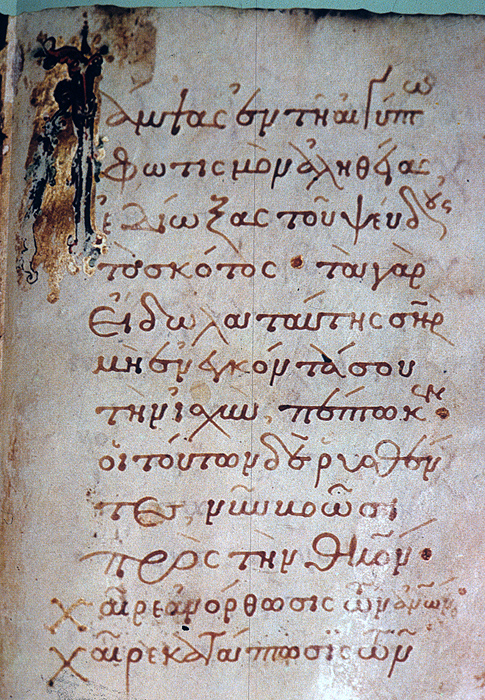 Λάμψας ἐν τῆ αἰγύπτω
φωτισμὸν ἀληθείας
ἐδίωξας τοῦ ψεύδους
τὸ σκότος · τὰ γὰρ
εἴδωλα ταύτης σηρ
μὴ ἐνεγκόντα σου
τὴν ἰσχὺν, πέπτωκεν ·
οἱ τούτων δὲ ρυσθέν
τες νῦν βοῶσι
πρὸς τὴν θκον ·
χαῖρε ἀνόρθωσις τῶν ἀνων ·
χαῖρε κατάπτωσις τῶν